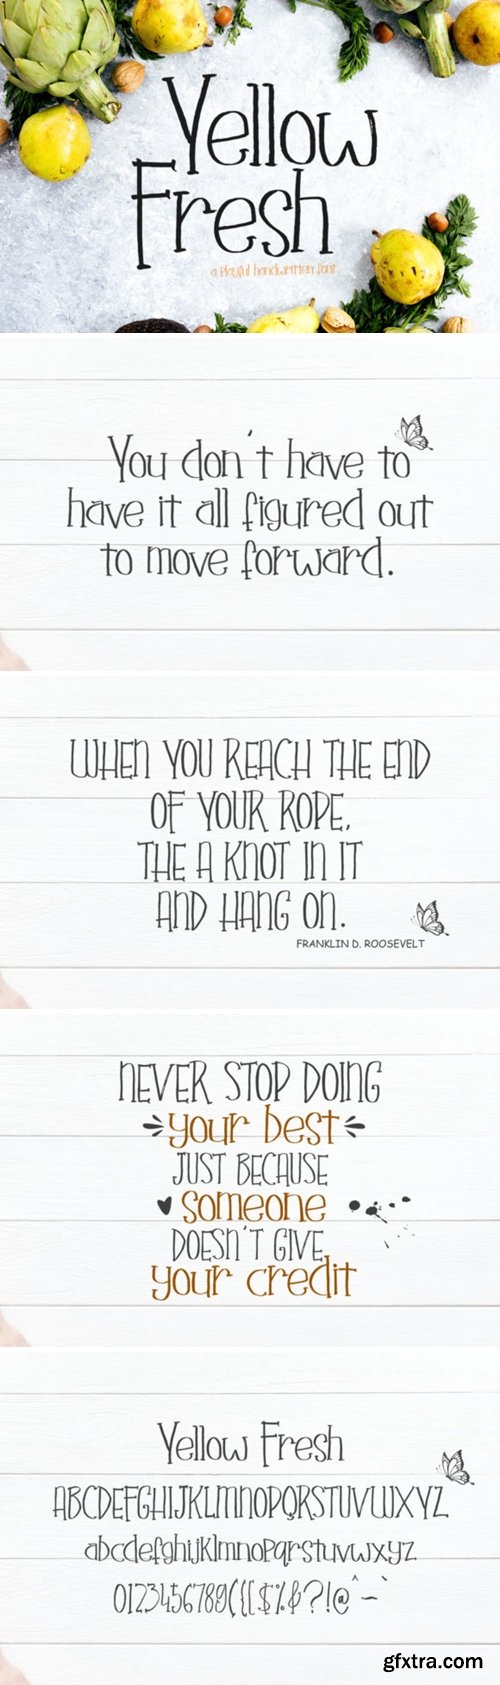 Yellow
Fresh
a playful handwritten font
You don't have to
have it all figured out
to move forward.
WHEN YOU REACH THE END
OF YOUR ROPE,
THE A KNOT IN IT
AND HANG ON.
FRANKLIN D. ROOSEVELT
NEVER STOP DOING
your best
JUST BECAUSE
someone
DOESN'T GIVE
your credit
Yellow Fresh
ABCDEFGHIJKLMNOPQRSTUVWXYZ
abcdefghijklmnopqrstuvwxyz
0123456789({[$%&?!@^~`
gfxtra.com